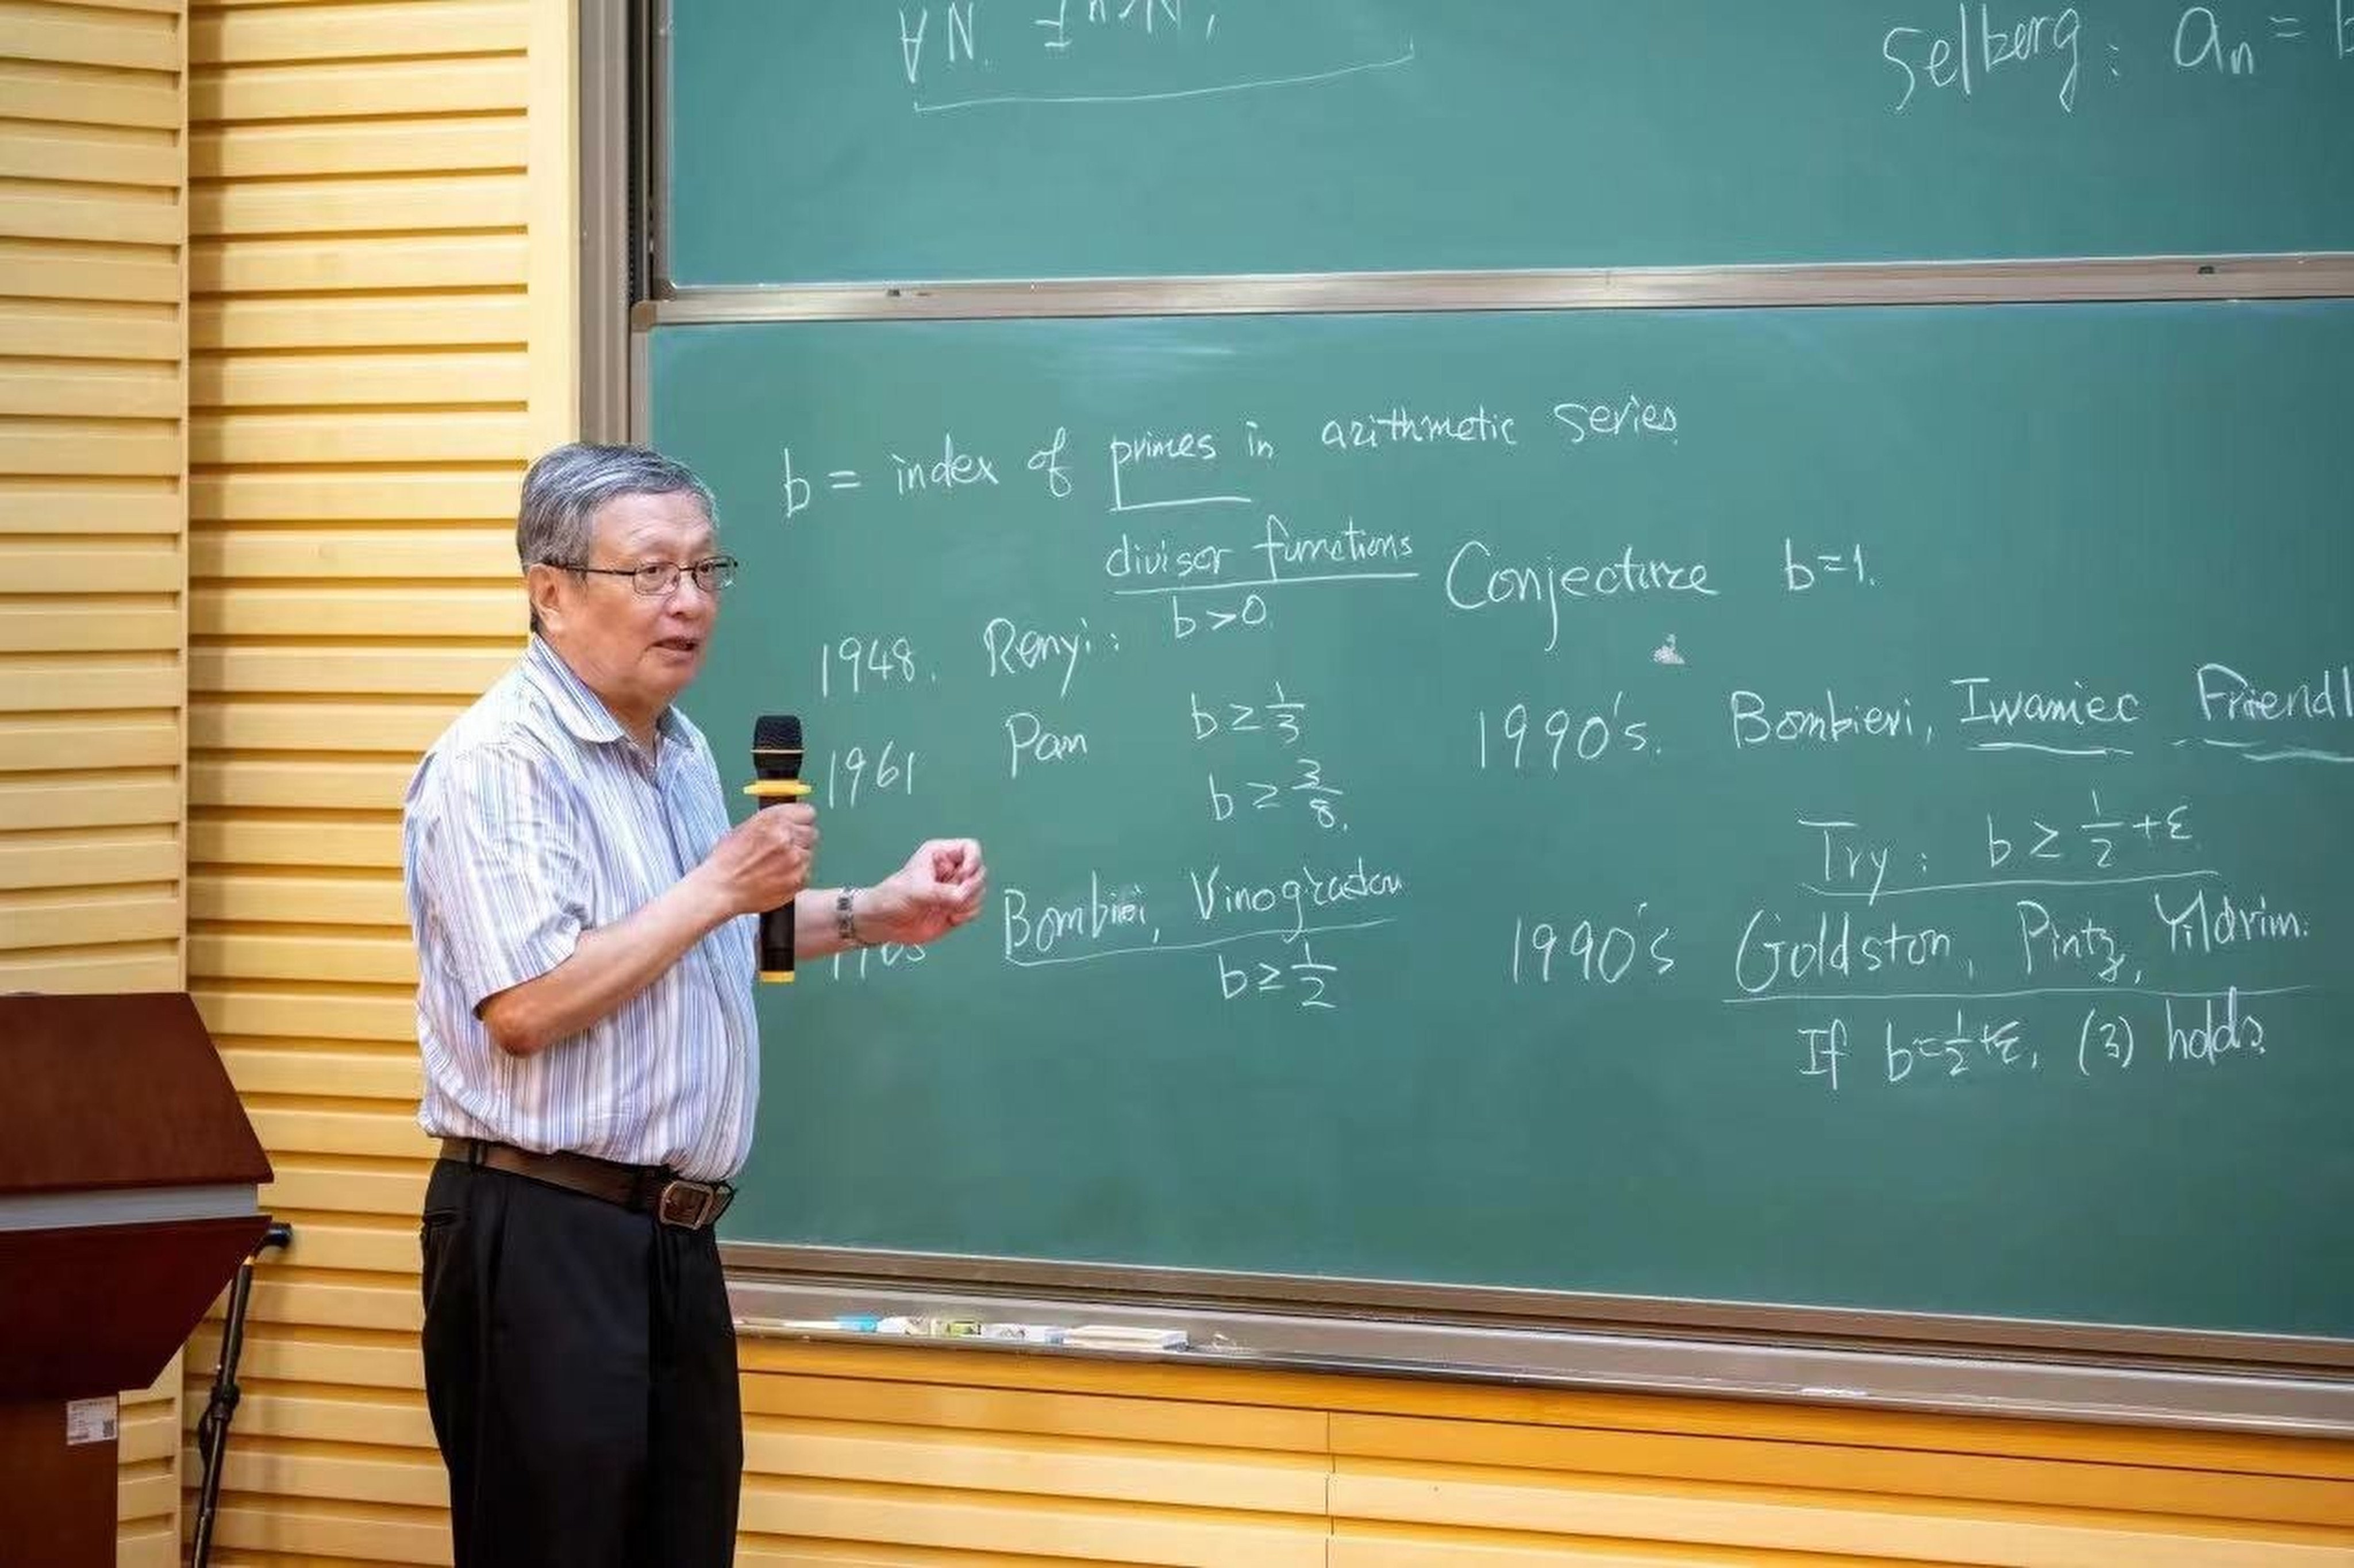 ∀N.
Selberg: aₙ =
b = index of primes in arithmetic series.
divisor functions
Conjecture b=1.
1948. Renyi: b>0.
1961 Pan b ≥ 1/3
b ≥ 3/8.
Bombieri, Vinogradov
b ≥ 1/2
1990's. Bombieri, Iwaniec Friendl
Try: b ≥ 1/2+ε
1990's Goldston, Pintz, Yildrim.
If b=1/2+ε, (3) holds.